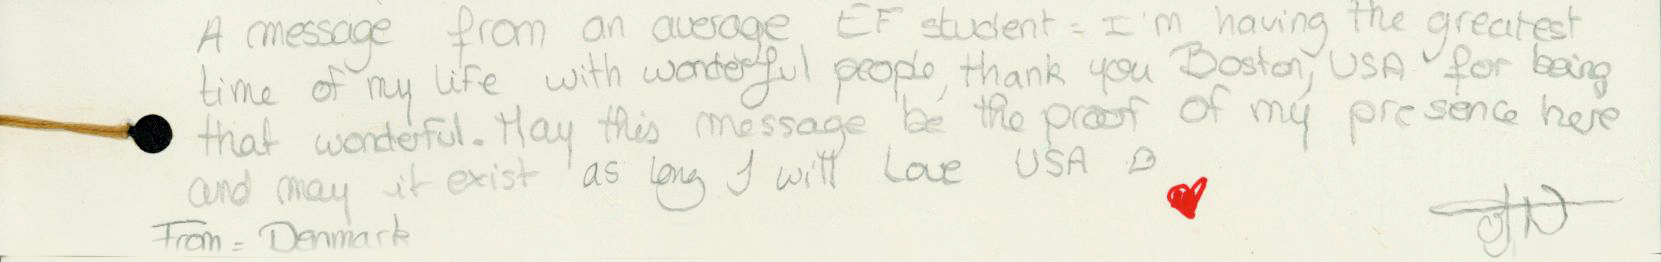 A message from an average EF student = I'm having the greatest
time of my life with wonderful people, thank you Boston, USA for being
that wonderful. May this message be the proof of my presence here
and may it exist as long I will Love USA
From = Denmark